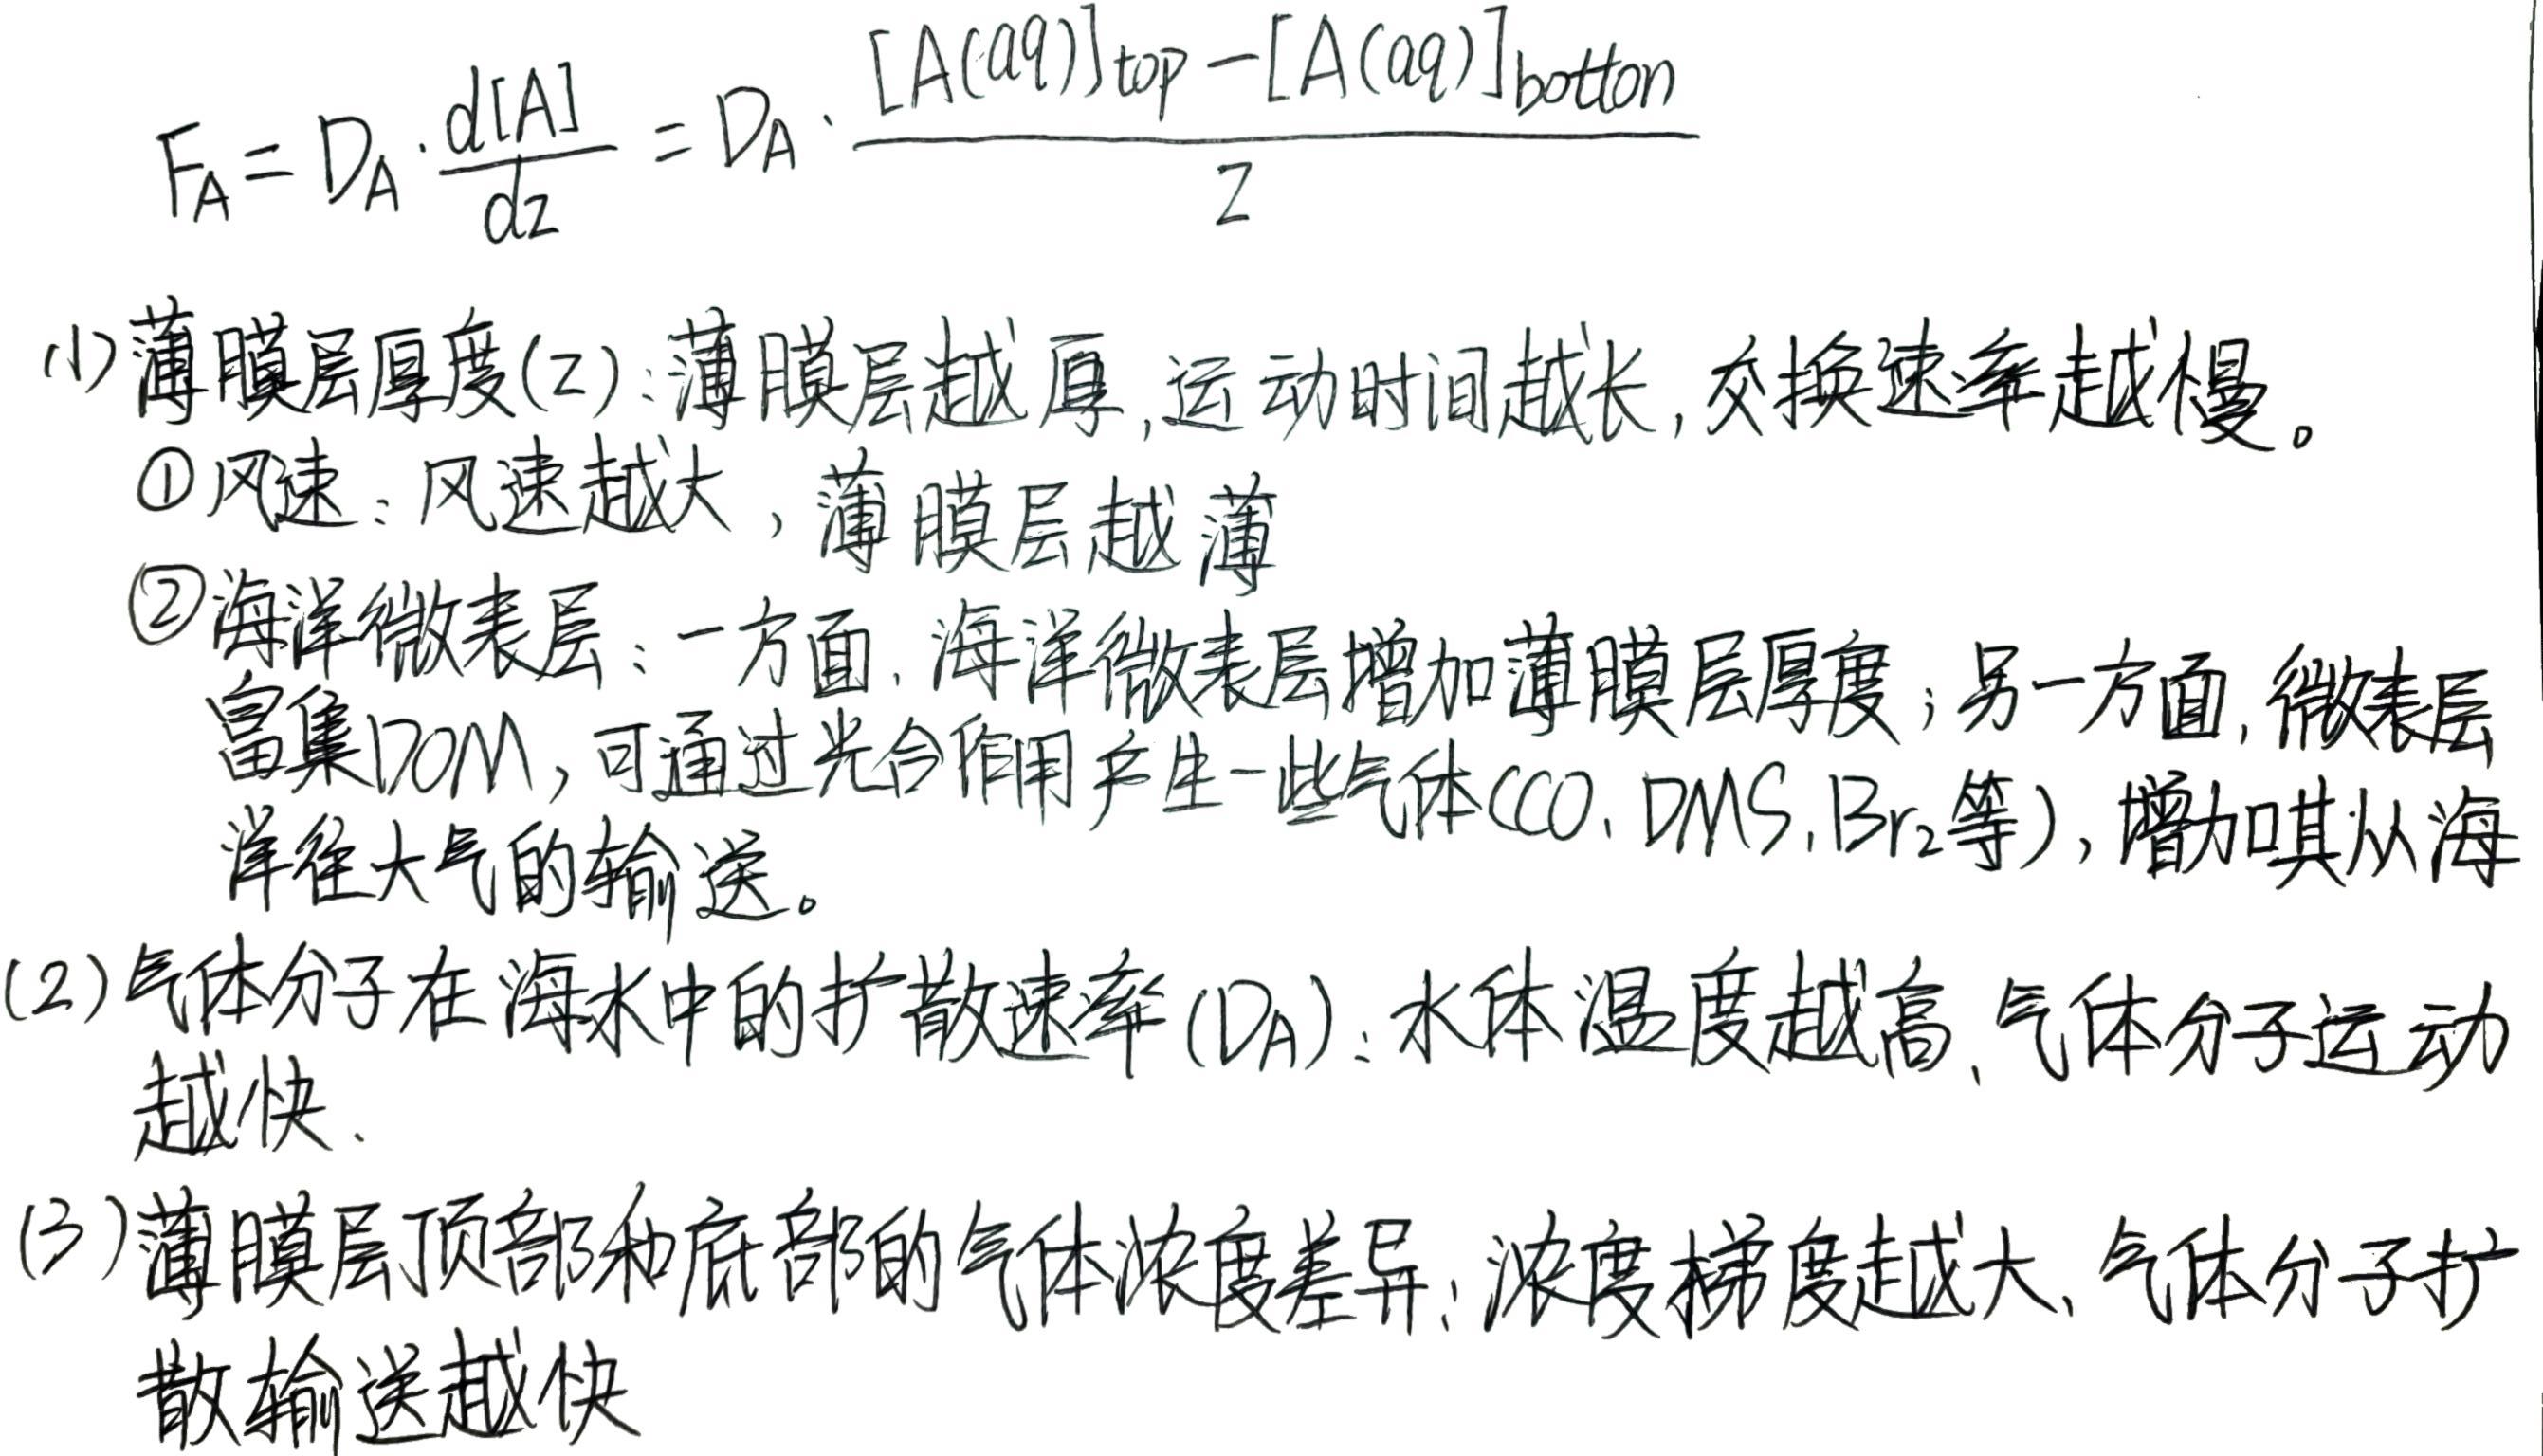 F_A = D_A · d[A]/dz = D_A · ([A(aq)]top − [A(aq)]botton)/z
(1)薄膜层厚度(z):薄膜层越厚,运动时间越长,交换速率越慢。
①风速:风速越大,薄膜层越薄
②海洋微表层:一方面,海洋微表层增加薄膜层厚度;另一方面,微表层
富集DOM,可通过光合作用产生一些气体(CO、DMS、Br₂等),增加其从海
洋往大气的输送。
(2)气体分子在海水中的扩散速率(D_A):水体温度越高、气体分子运动
越快.
(3)薄膜层顶部和底部的气体浓度差异:浓度梯度越大、气体分子扩
散输送越快